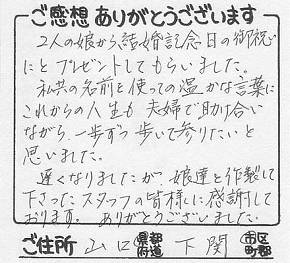 ご感想ありがとうございます
2人の娘から、結婚記念日の御祝
にとプレゼントしてもらいました。
私共の名前を使っての温かな言葉に
これからの人生も 夫婦で助け合い
ながら、一歩ずつ歩いて参りたいと
思いました。
遅くなりましたが、娘達と作製して
下さったスタッフの皆様に感謝して
おります。ありがとうございました。
ご住所 山口 都道府県 下関 市区町郡